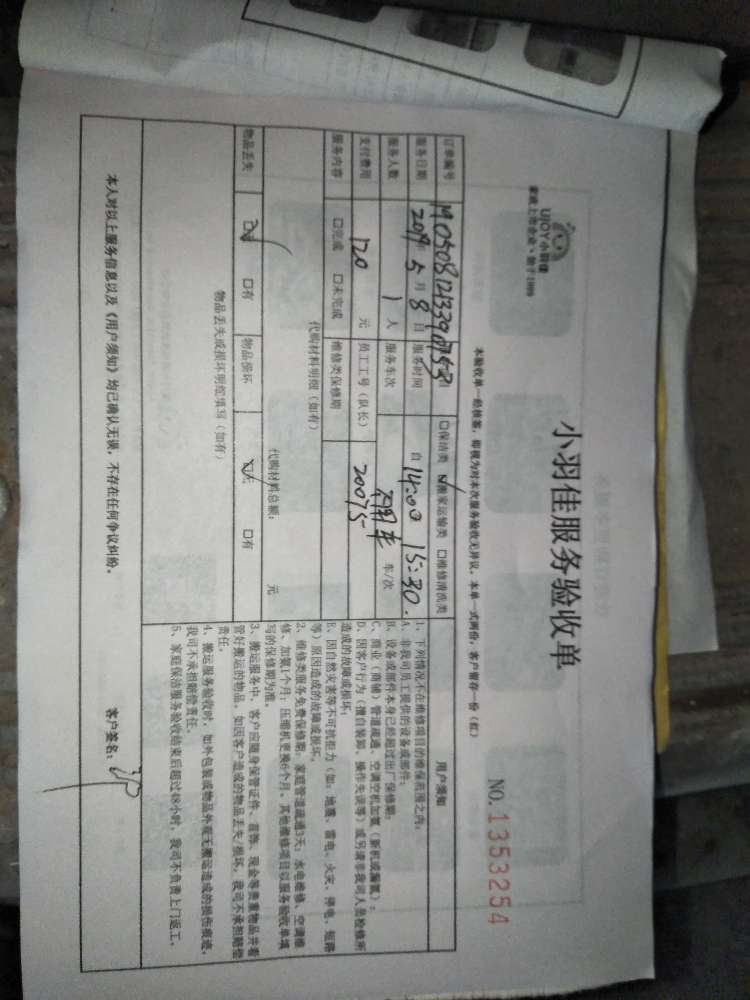 UJOY小羽佳
家政上市企业·始于1999
小羽佳服务验收单
NO.1353254
本验收单一经核签，即视为对本次服务验收无异议。本单一式两份，客户留存一份（红）
订单编号 □保洁类 ☑搬家运输类 □维修清洗类
服务日期 2019年5月8日 服务时间 自14:00 15:30.
服务人数 1人 服务车次 车/次
支付费用 120元 员工工号（队长） 20075
服务内容 □完成 □未完成 维修类保修期
代购材料明细（如有）
代购材料总额： 元
物品丢失 ☑无 □有 物品损坏 ☑无 □有
物品丢失或损坏明细填写（如有）
用户须知
1、下列情况不在维修项目的维保范围之内：
A、非我司员工提供的设备或部件；
B、设备或部件本身已经超过出厂保修期；
C、商业（商铺）管道疏通、空调空机加氟（新机或漏氟）；
D、因客户行为（擅自装卸、操作失误等）或另请非我司人员检修所
造成的故障或损坏；
E、因自然灾害等不可抗拒力（如：地震、雷电、火灾、停电、短路
等）原因造成的故障或损坏。
2、维修类服务免费保修期：家庭管道疏通3天；水电维修、空调维
修、加氟1个月；压缩机更换6个月。其他维修项目以服务验收单填
写的保修期为准。
3、搬运服务中，客户应随身保管证件、首饰、现金等贵重物品并看
管好搬运的物品，如因客户造成的物品丢失/损坏，我司不承担赔偿
责任。
4、搬运服务验收时，如外包装或物品外观无搬运造成的损伤痕迹，
我司不承担赔偿责任。
5、家庭保洁服务验收结束后超过48小时，我司不负责上门返工。
本人对以上服务信息以及《用户须知》均已确认无误，不存在任何争议纠纷。
客户签名：